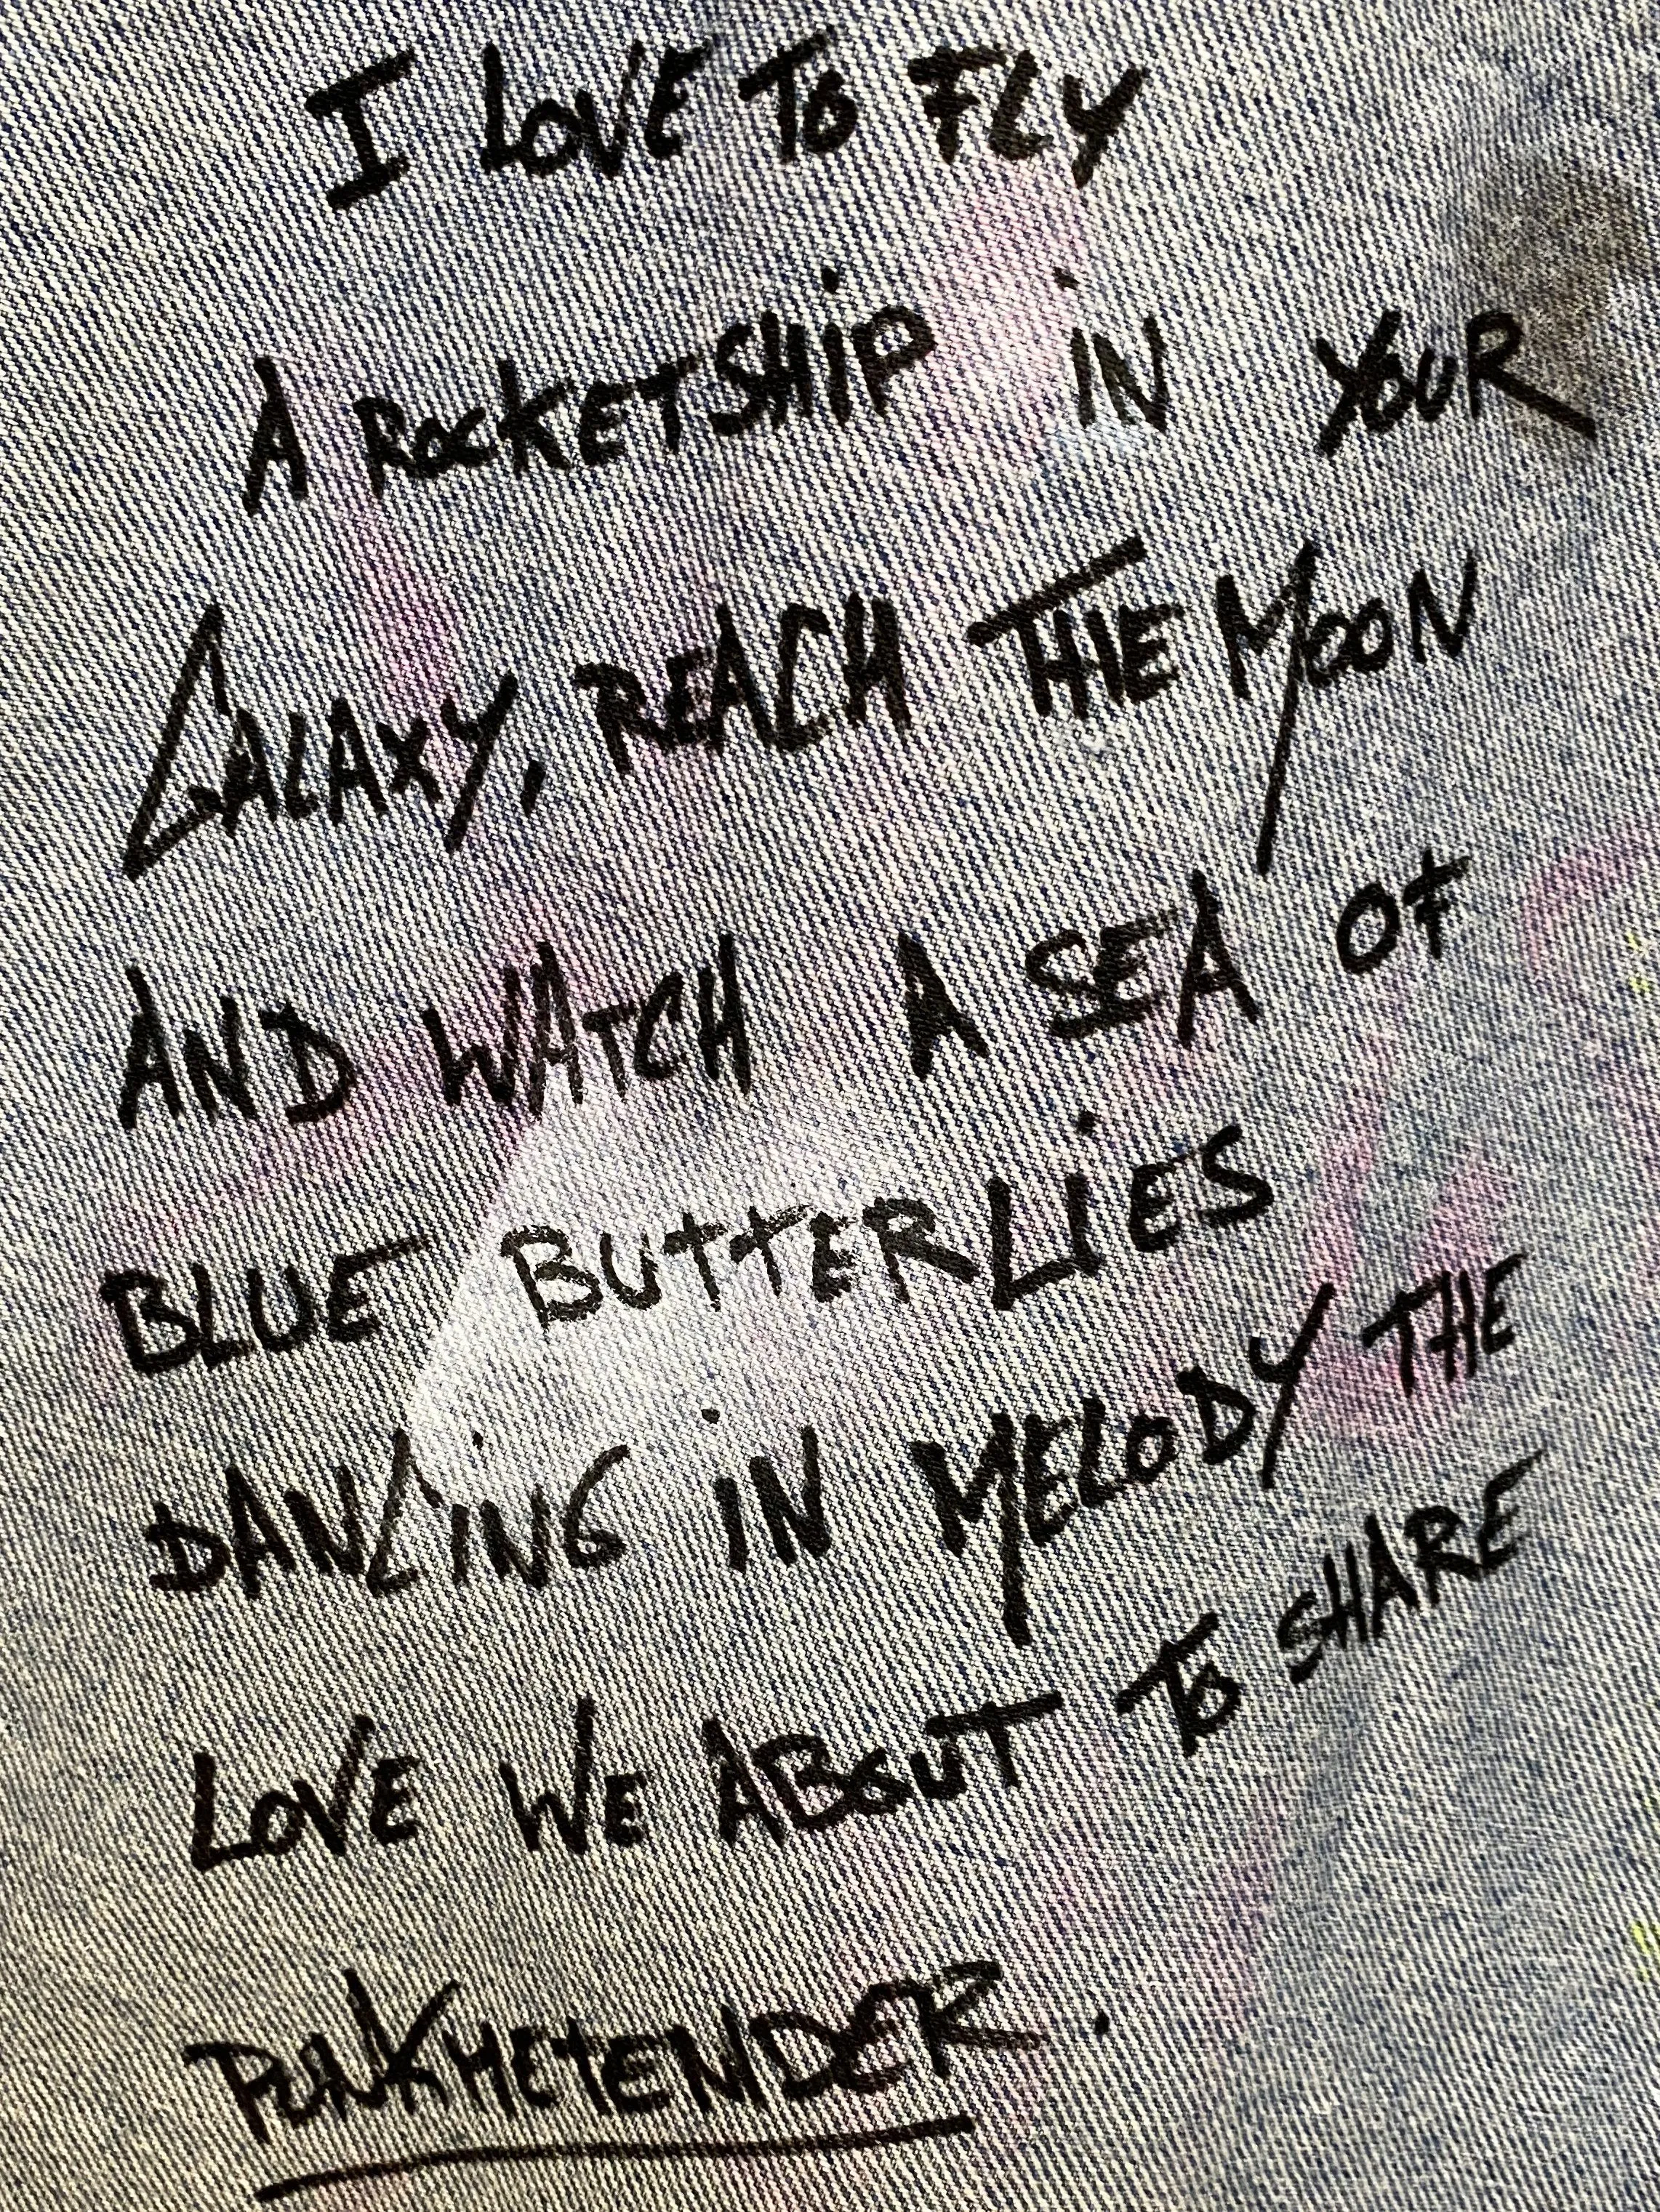 I LOVE TO FLY
A ROCKETSHIP IN YOUR
GALAXY, REACH THE MOON
AND WATCH A SEA OF
BLUE BUTTERLIES
DANCING IN MELODY THE
LOVE WE ABOUT TO SHARE
PUNKMETENDER.